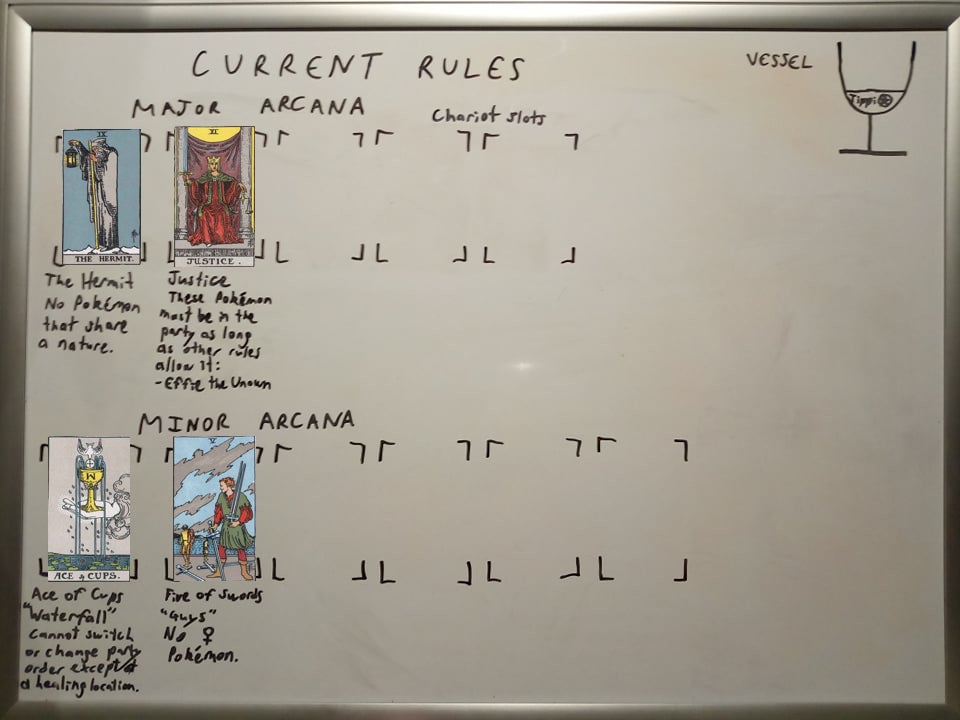 CURRENT RULES
VESSEL
Tippi
MAJOR ARCANA
Chariot slots
IX
THE HERMIT.
XI
JUSTICE.
The Hermit
No Pokémon
that share
a nature.
Justice
These Pokémon
must be in the
party as long
as other rules
allow it:
-Effie the Unown
MINOR ARCANA
ACE of CUPS.
V
Ace of Cups
"Waterfall"
Cannot switch
or change party
order except at
a healing location.
Five of Swords
"Guys"
No ♀
Pokémon.